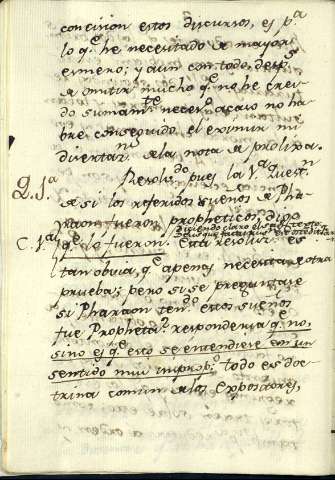 concision estos discursos, es pª
lo q.e he necesitado de mayor
esmero; y aun con todo, desp.s
de omitir mucho q.e no he crei-
do sumam.te necess.º acaso no ha-
bre conseguido el eximir mi
dissertac.n de la nota de prolixa.
Resolv.do pues la 1.ª Quest.n
Q. 1.ª
de si los referidos sueños de Pha-
raon fueron propheticos, digo
C. 1.ª q.e lo fueron. Esta resoluc.n es
tan obvia, q.e apenas necesita de otra
prueba; pero si se preguntase
si Pharaon ten.do estos sueños
fue Propheta? responderia q.e no,
sino es q.e esto se entendiese en un
sentido mui improp.º todo es doc-
trina comun de los Expositores,